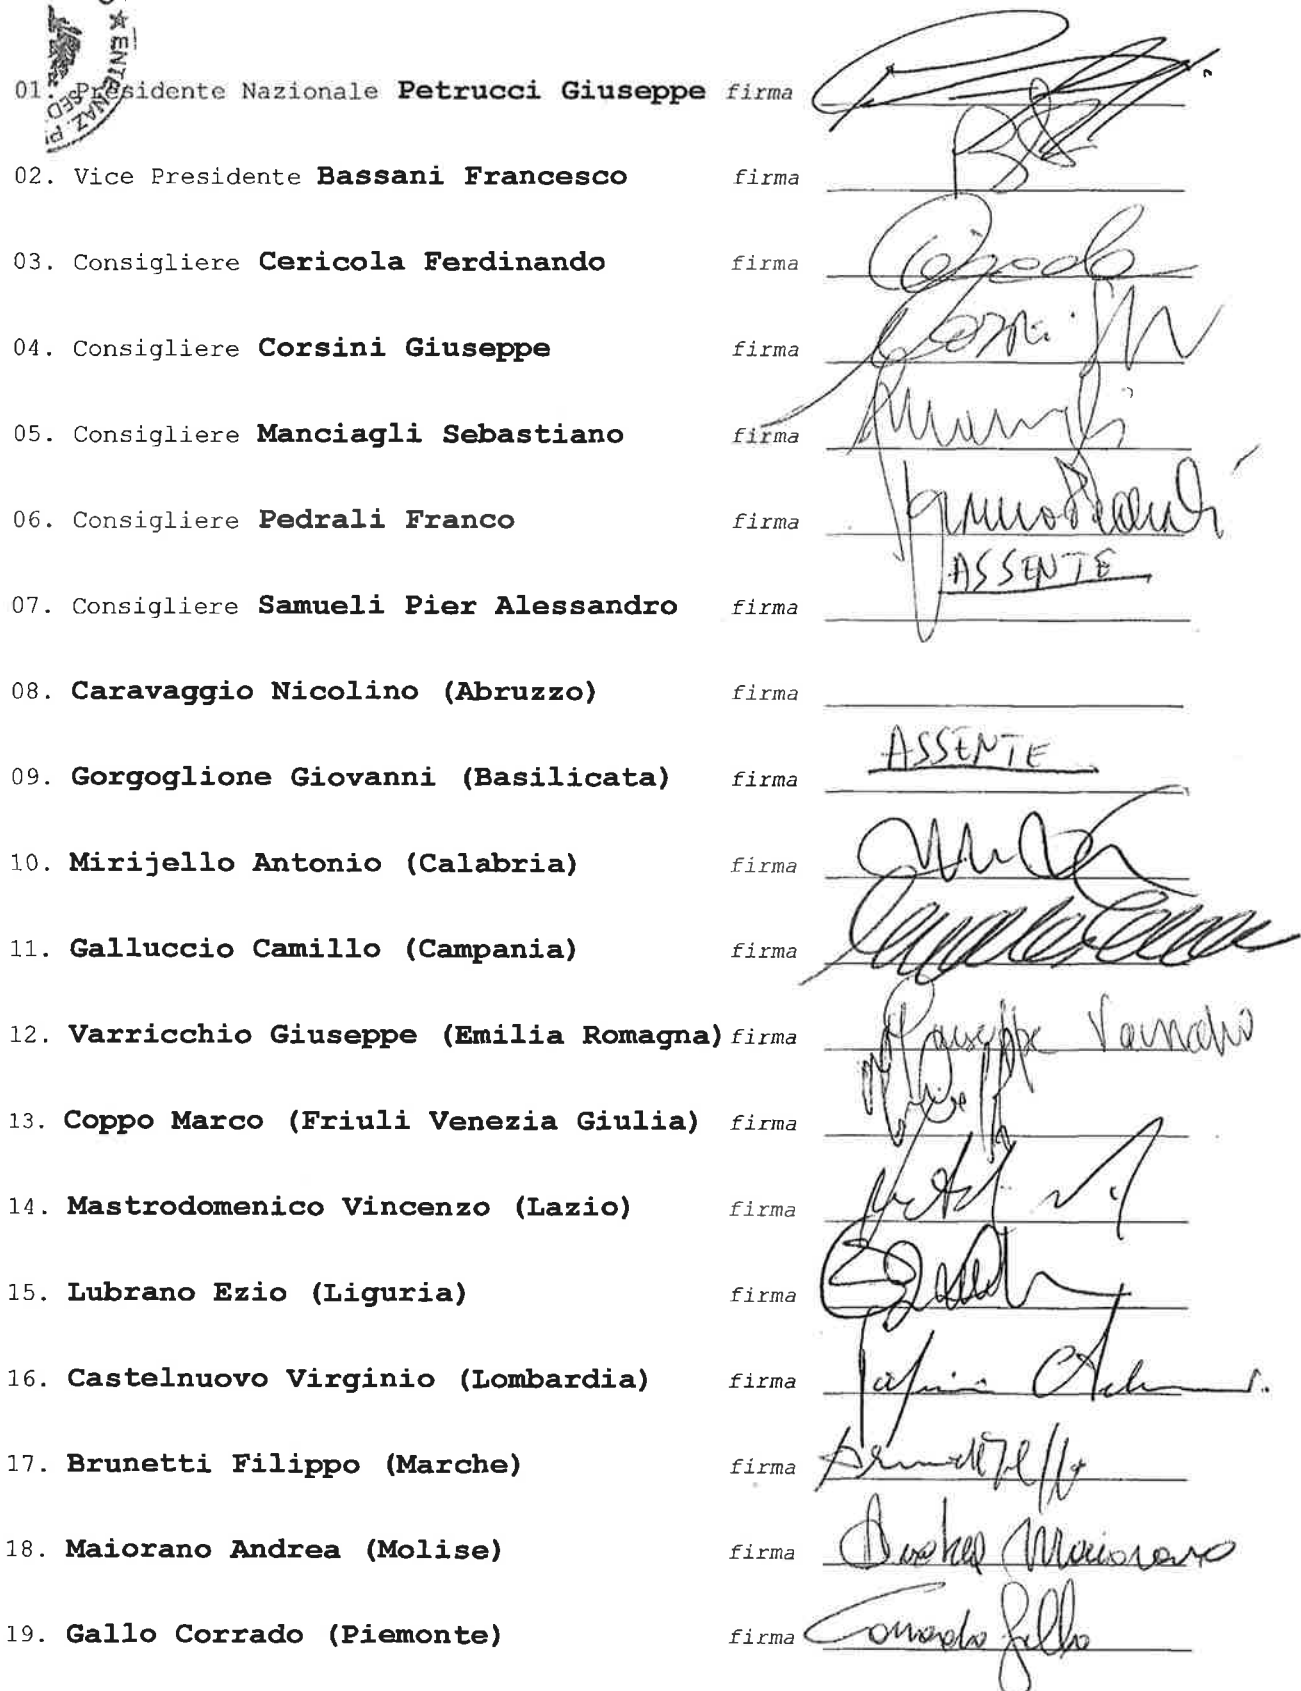 ★ ENTE NAZ. P
SED
01. Presidente Nazionale Petrucci Giuseppe firma
02. Vice Presidente Bassani Francesco firma
03. Consigliere Cericola Ferdinando firma
04. Consigliere Corsini Giuseppe firma
05. Consigliere Manciagli Sebastiano firma
06. Consigliere Pedrali Franco firma
ASSENTE
07. Consigliere Samueli Pier Alessandro firma
08. Caravaggio Nicolino (Abruzzo) firma
ASSENTE
09. Gorgoglione Giovanni (Basilicata) firma
10. Mirijello Antonio (Calabria) firma
11. Galluccio Camillo (Campania) firma
12. Varricchio Giuseppe (Emilia Romagna) firma Giuseppe Varricchio
13. Coppo Marco (Friuli Venezia Giulia) firma
14. Mastrodomenico Vincenzo (Lazio) firma
15. Lubrano Ezio (Liguria) firma
16. Castelnuovo Virginio (Lombardia) firma
17. Brunetti Filippo (Marche) firma
18. Maiorano Andrea (Molise) firma Andrea Maiorano
19. Gallo Corrado (Piemonte) firma Corrado Gallo